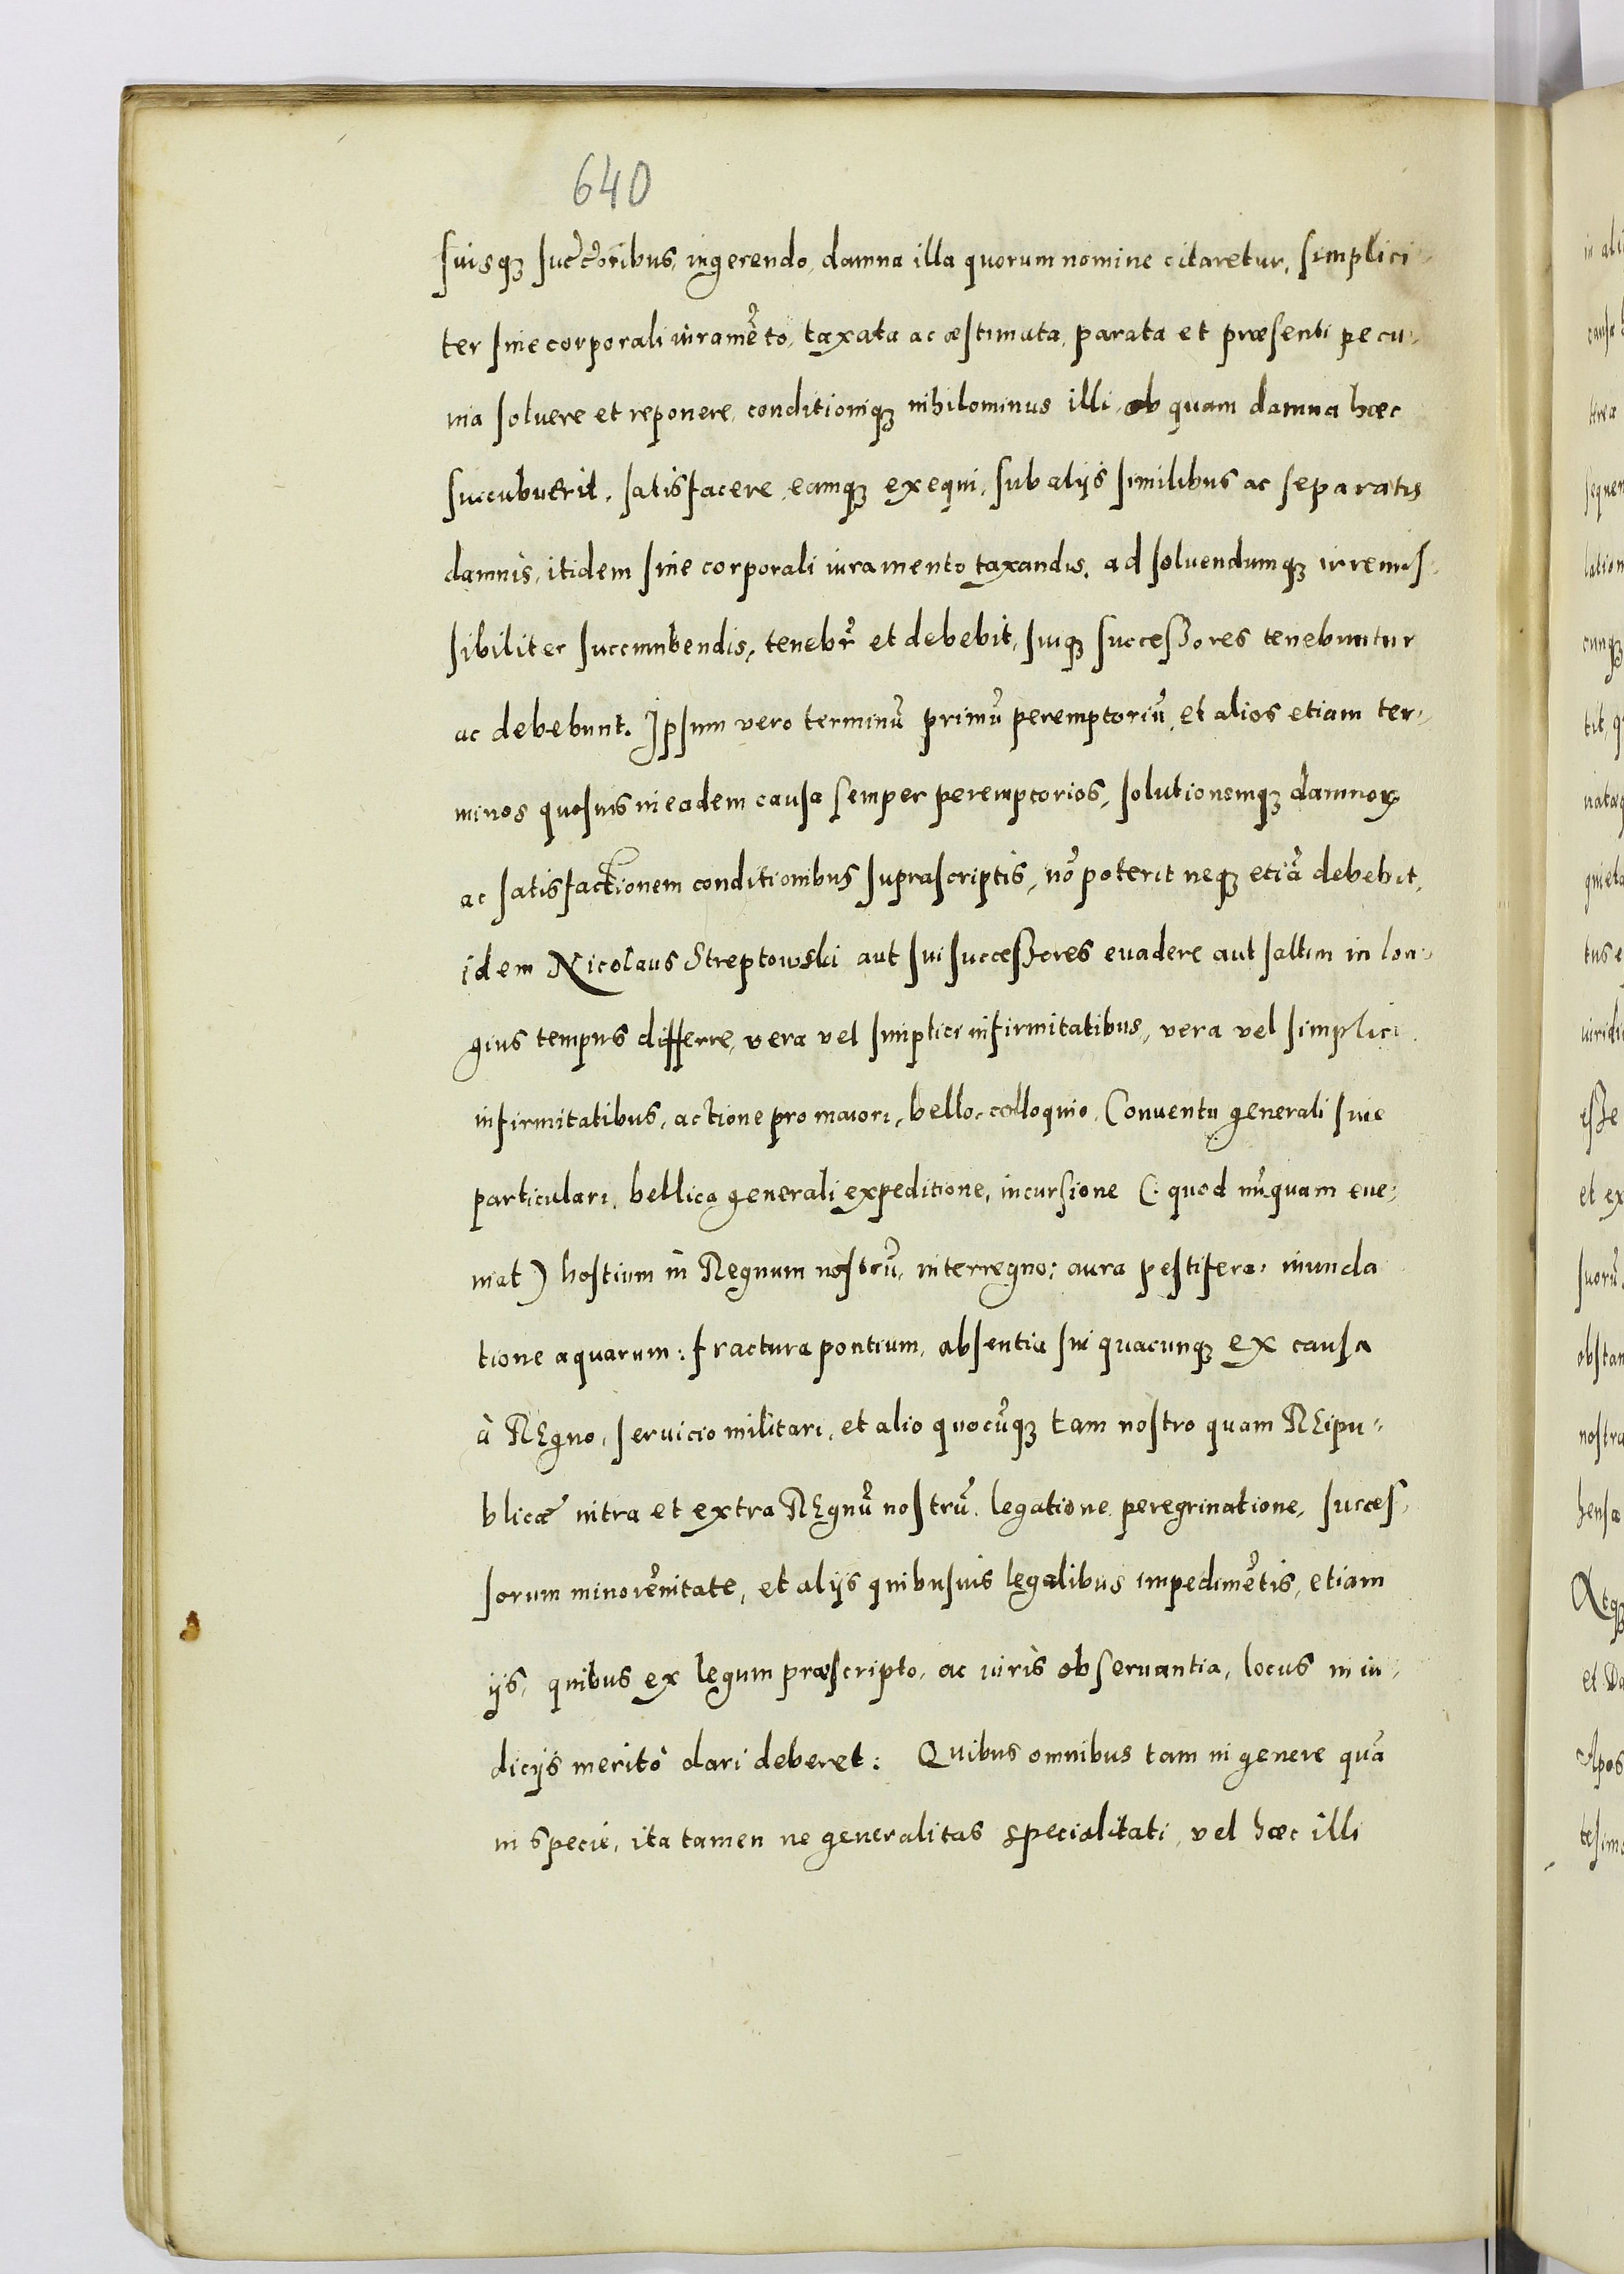 640
suisq₃ succ̃oribus, ingerendo, damna illa quorum nomine citaretur, simplici-
ter sine corporali iuramẽto, taxata ac æstimata, parata et præsenti pecu-
nia soluere et reponere, conditioniq₃ nihilominus illi, ob quam damna hæc
succubuerit, satisfacere, eamq₃ exequi, sub alijs similibus ac separatis
damnis, itidem sine corporali iuramento taxandis, ad soluendumq₃ irremis-
sibiliter succumbendis, tenebr̃ et debebit, suiq₃ successores tenebuntur
ac debebunt. Ipsum vero terminũ primũ peremptoriũ, et alios etiam ter-
minos quosuis in eadem causa semper peremptorios, solutionemq₃ damnoꝝ
ac satisfactionem conditionibus suprascriptis, nõ poterit neq₃ etiã debebit,
idem Nicolaus Streptowski aut sui successores euadere aut saltim in lon-
gius tempus differre, vera vel simplici infirmitatibus, vera vel simplici
infirmitatibus, actione pro maiori, bello, colloquio, Conuentu generali siue
particulari, bellica generali expeditione, incursione (: quod nũquam eue-
niat) hostium in Regnum nostrũ, interregno: aura pestifera, inunda
tione aquarum: fractura pontium, absentia sui quacunq₃ ex causa
à REgno, seruicio militari, et alio quocũq₃ tam nostro quam REipu-
blicæ intra et extra REgnũ nostrũ, legatione, peregrinatione, succes-
sorum minorẽnitate, et alijs quibusuis legalibus impedimẽtis, etiam
ijs, quibus ex legum præscripto, ac iuris obseruantia, locus in iu-
dicijs meritò dari deberet: Quibus omnibus tam in genere quã
in specie, ita tamen ne generalitas specialitati, vel hæc illi